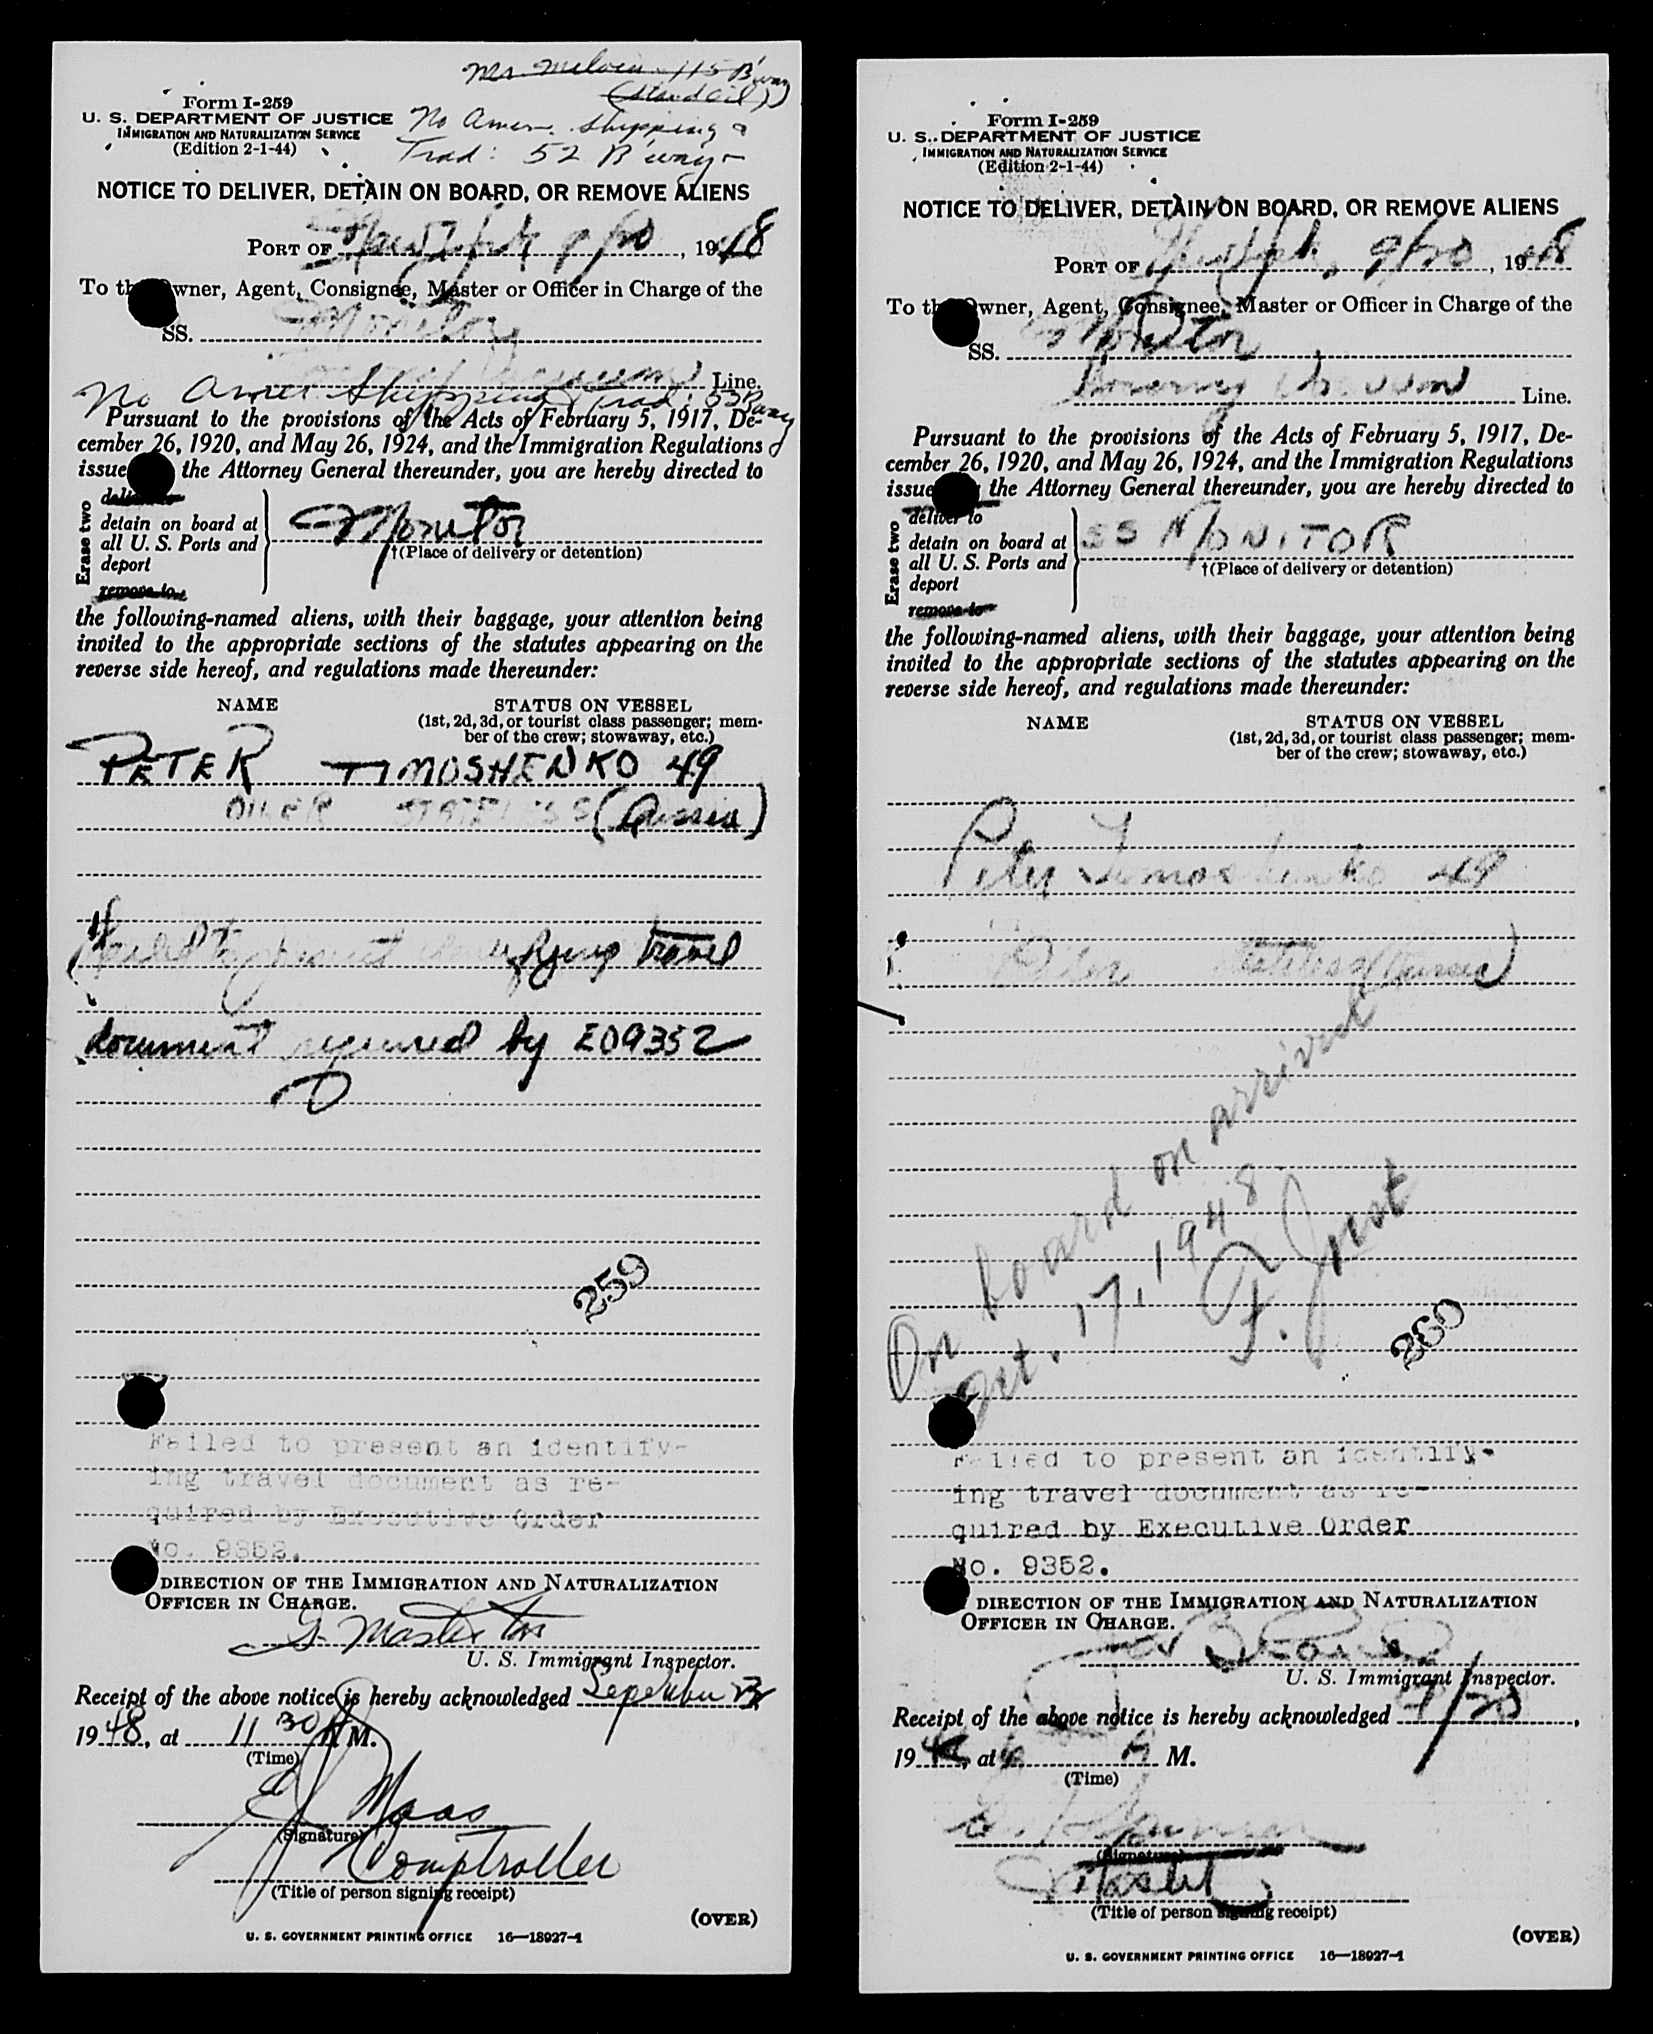 Mr. Melvin 115 B'way
(Stand Oil)
Form I-259
U. S. DEPARTMENT OF JUSTICE
IMMIGRATION AND NATURALIZATION SERVICE
(Edition 2-1-44)
No Amer. Shipping &
Trad: 52 B'way
NOTICE TO DELIVER, DETAIN ON BOARD, OR REMOVE ALIENS
PORT OF New York 9/20, 1948
To the Owner, Agent, Consignee, Master or Officer in Charge of the
SS. Monitor
Line.
No Amer Shipping & Trad: 52 B'way
Pursuant to the provisions of the Acts of February 5, 1917, De-
cember 26, 1920, and May 26, 1924, and the Immigration Regulations
issue the Attorney General thereunder, you are hereby directed to
Erase two
deliver to
detain on board at
all U. S. Ports and
deport
remove to
Monitor
†(Place of delivery or detention)
the following-named aliens, with their baggage, your attention being
invited to the appropriate sections of the statutes appearing on the
reverse side hereof, and regulations made thereunder:
NAME STATUS ON VESSEL
(1st, 2d, 3d, or tourist class passenger; mem-
ber of the crew; stowaway, etc.)
PETER TIMOSHENKO 49
OILER STATELESS (Russia)
Failed to present identifying travel
document required by EO9352
259
Failed to present an identify-
ing travel document as re-
quired by Executive Order
No. 9352.
DIRECTION OF THE IMMIGRATION AND NATURALIZATION
OFFICER IN CHARGE.
G. Masterton
U. S. Immigrant Inspector.
Receipt of the above notice is hereby acknowledged September
1948, at 11 30 A M.
(Time)
E J Maas
(Signature)
Comptroller
(Title of person signing receipt)
(OVER)
U. S. GOVERNMENT PRINTING OFFICE 16—18927-1
Form I-259
U. S. DEPARTMENT OF JUSTICE
IMMIGRATION AND NATURALIZATION SERVICE
(Edition 2-1-44)
NOTICE TO DELIVER, DETAIN ON BOARD, OR REMOVE ALIENS
PORT OF New York, 9/20, 1948
To the Owner, Agent, Consignee, Master or Officer in Charge of the
SS. Monitor
Line.
Pursuant to the provisions of the Acts of February 5, 1917, De-
cember 26, 1920, and May 26, 1924, and the Immigration Regulations
issue the Attorney General thereunder, you are hereby directed to
Erase two
deliver to
detain on board at
all U. S. Ports and
deport
remove to
SS MONITOR
†(Place of delivery or detention)
the following-named aliens, with their baggage, your attention being
invited to the appropriate sections of the statutes appearing on the
reverse side hereof, and regulations made thereunder:
NAME STATUS ON VESSEL
(1st, 2d, 3d, or tourist class passenger; mem-
ber of the crew; stowaway, etc.)
Peter Timoshenko 49
Oiler Stateless (Russia)
On board on arrival
Oct. 17, 1948
F. Jost
260
Failed to present an identify-
ing travel document as re-
quired by Executive Order
No. 9352.
DIRECTION OF THE IMMIGRATION AND NATURALIZATION
OFFICER IN CHARGE.
U. S. Immigrant Inspector.
Receipt of the above notice is hereby acknowledged 9/20,
1948, at A M.
(Time)
(Signature)
Master
(Title of person signing receipt)
(OVER)
U. S. GOVERNMENT PRINTING OFFICE 16—18927-1